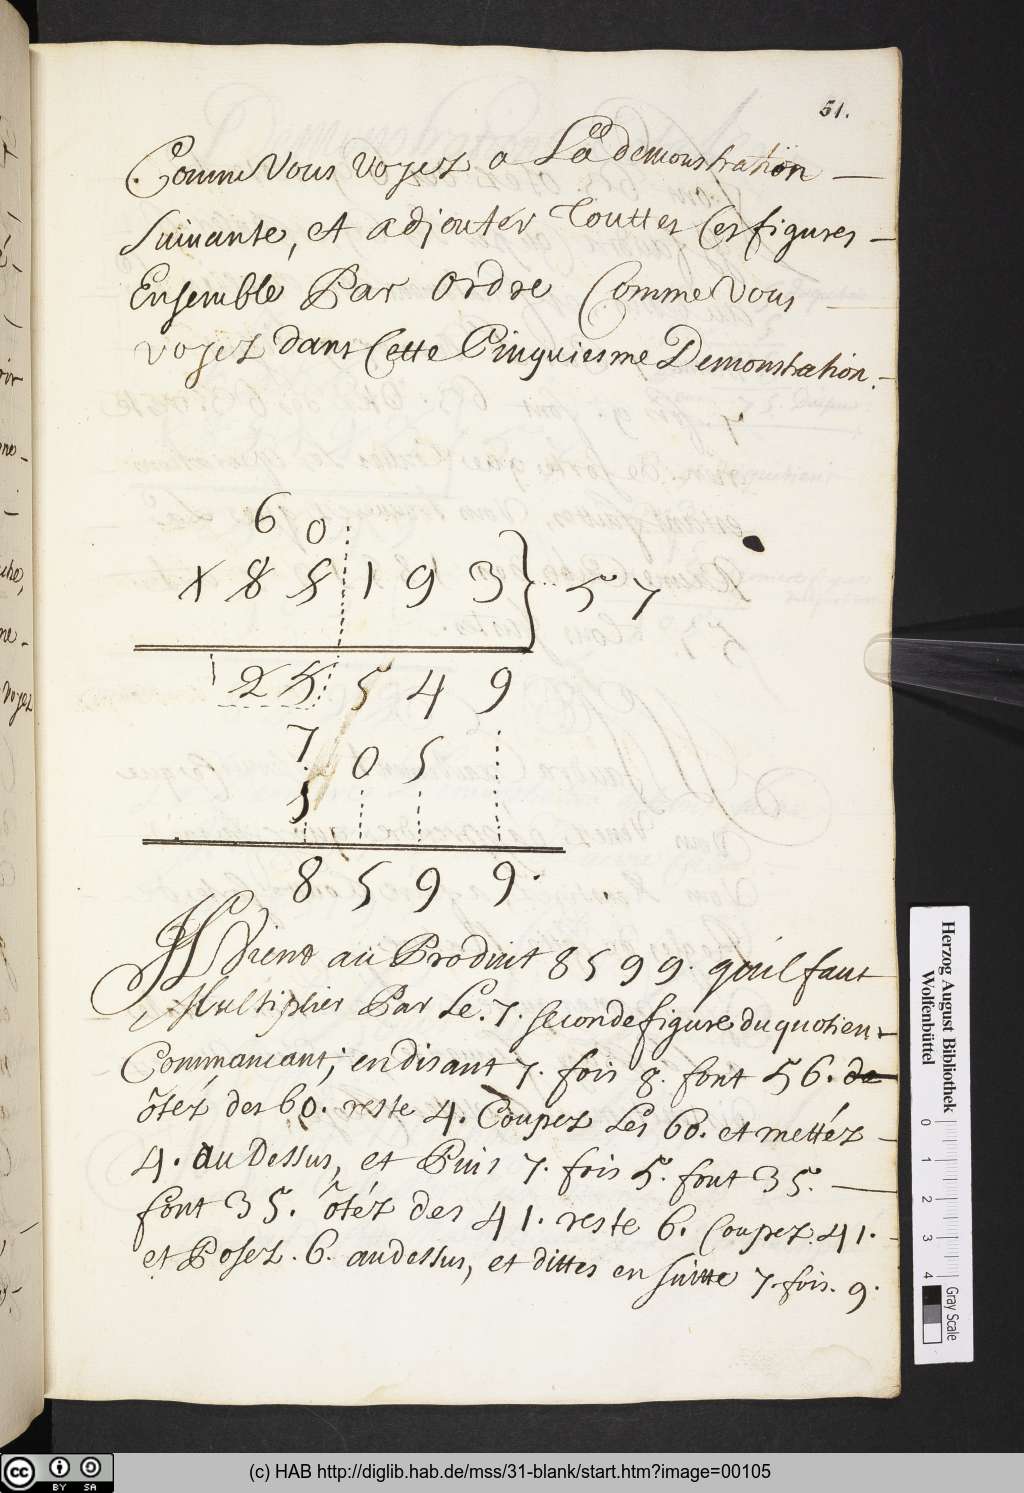 51.
Comme Vous voyez a La demonstration
Suivante, et adjouter Touttes Ces figures
Ensemble Par Ordre Comme Vous
voyez dans Cette Cinquiesme Demonstration.
6 0
1 8 5 1 9 3 } 5 7
2 5 5 4 9
7 0 5
1
8 5 9 9.
Il Vient au Produit 8599. qu'il faut
Multiplier Par Le. 7. seconde figure du quotient
Commancant; en disant 7. fois 8. font 56. de
ôtéz des 60. reste 4. Coupez Les 60. et mettéz
4. au Dessus, et Puis 7. fois 5. font 35.
font 35. ôtéz des 41. reste 6. Coupez. 41.
et Posez. 6. au dessus, et dittes en suitte 7. fois. 9.
voyez
Herzog August Bibliothek
Wolfenbüttel
0 1 2 3 4
Gray Scale
cc BY SA
(c) HAB http://diglib.hab.de/mss/31-blank/start.htm?image=00105